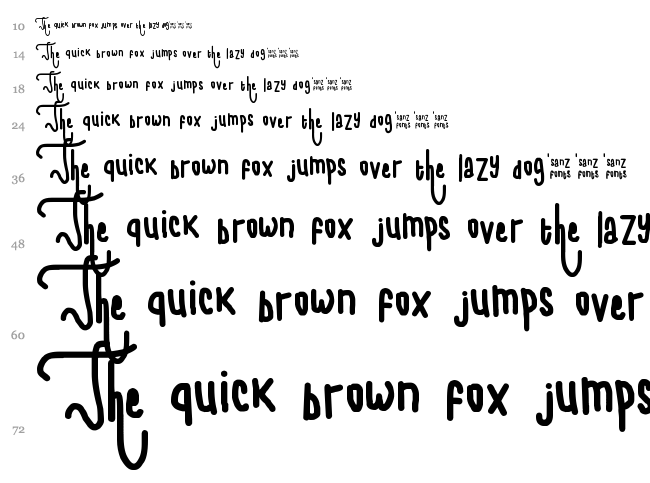 10 The quick brown fox jumps over the lazy dog 'sanz fonts 'sanz fonts 'sanz fonts
14 The quick brown fox jumps over the lazy dog 'sanz fonts 'sanz fonts 'sanz fonts
18 The quick brown fox jumps over the lazy dog 'sanz fonts 'sanz fonts 'sanz fonts
24 The quick brown fox jumps over the lazy dog 'sanz fonts 'sanz fonts 'sanz fonts
36 The quick brown fox jumps over the lazy dog 'sanz fonts 'sanz fonts 'sanz fonts
48 The quick brown fox jumps over the lazy
60 The quick brown fox jumps over
72 The quick brown fox jumps